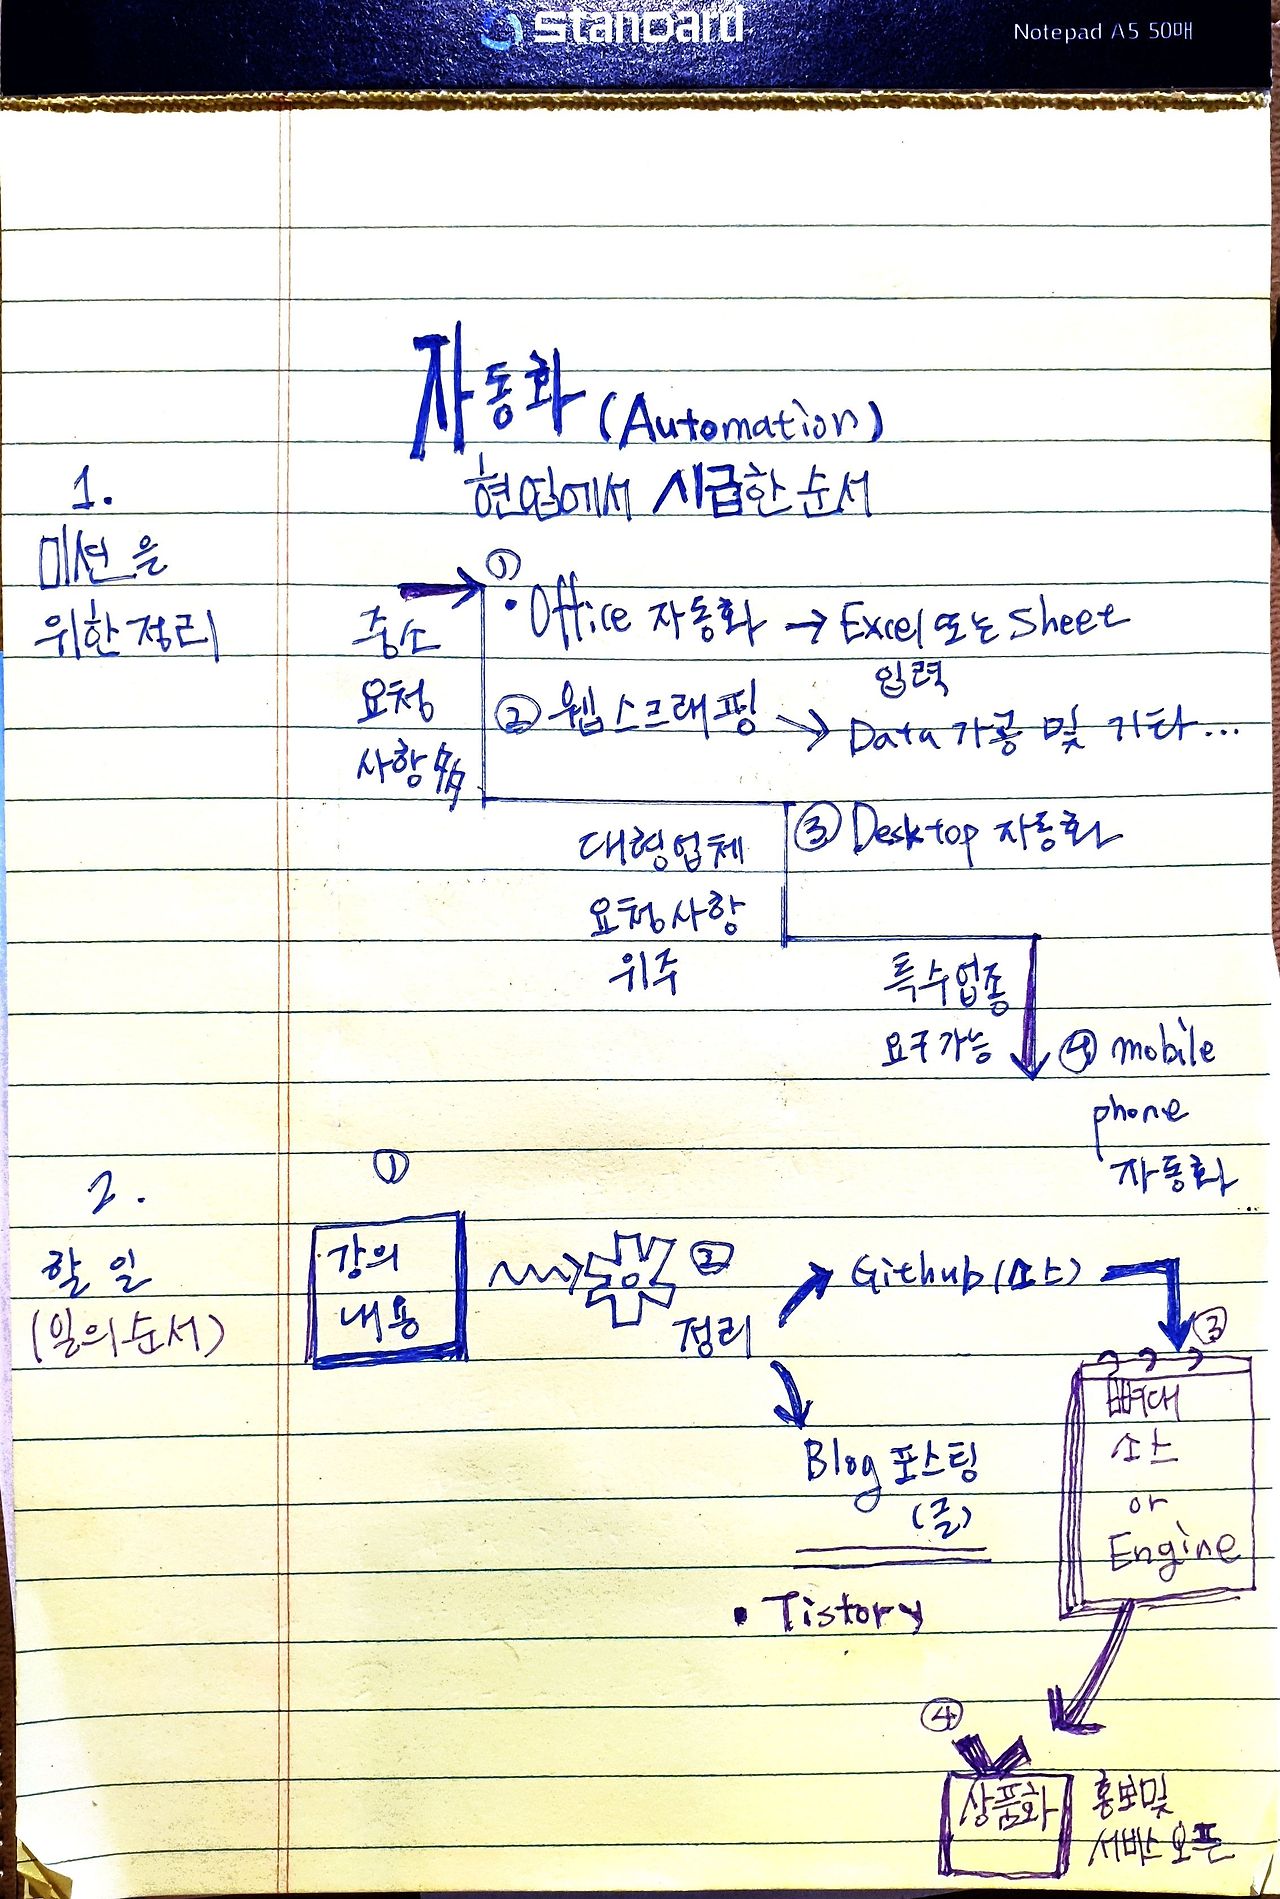 standard
Notepad A5 50매
자동화 (Automation)
현업에서 시급한 순서
1.
미션을
위한 정리
중소
요청
사항 多
①
• Office 자동화 → Excel 또는 Sheet
입력
② 웹스크래핑 → Data 가공 및 기타...
대형업체
요청사항
위주
③ Desktop 자동화
특수업종
요구가능
④ mobile
phone
자동화
2.
할 일
(일의 순서)
①
강의
내용
②
정리
Github (소스)
Blog 포스팅
(글)
• Tistory
③
뼈대
소스
or
Engine
④
상품화
홍보 및
서비스 오픈